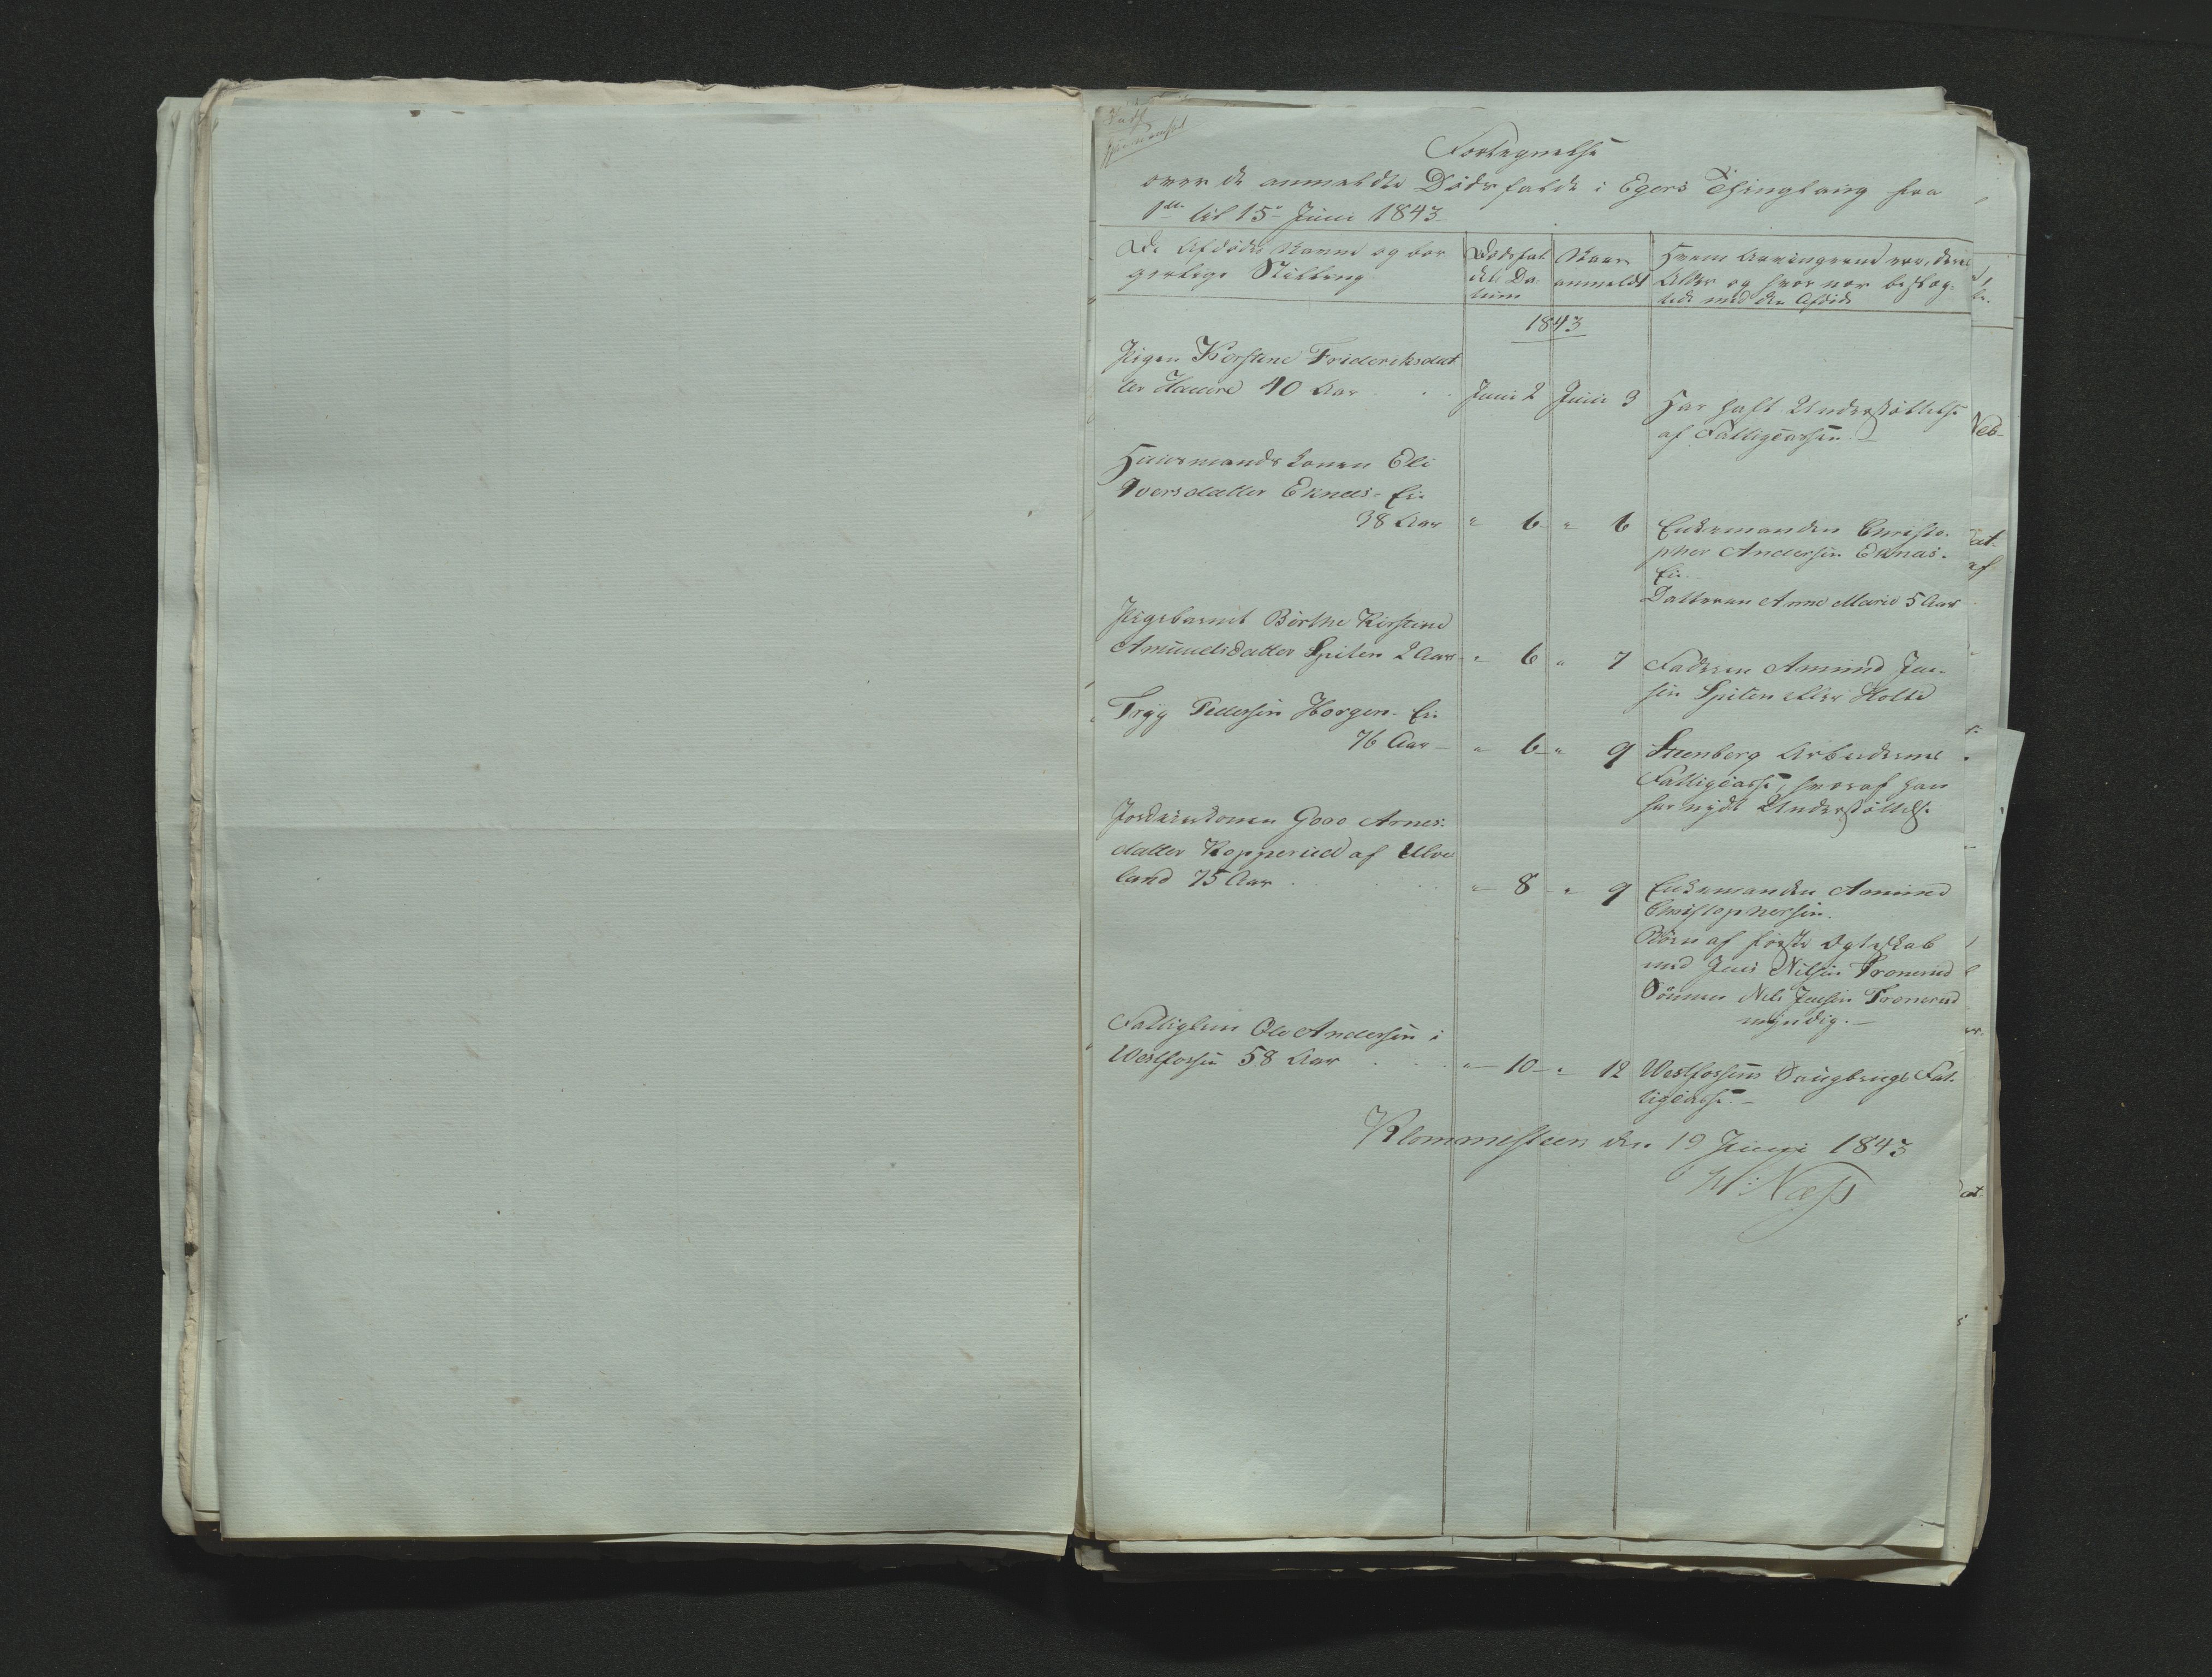 Fortegnelse
over de anmeldte Dödsfalde i Egers Thinglaug fra
1ste til 15de Juni 1843
De Afdödes Navne og bor
gerlige Stilling
Dödsfal
dets Da-
tum
Naar
anmeldt
Hvem Arvingerne ere, deres
Alder og hvor nær beslæg-
tede med den Afdöde
1843
Pigen Kirstine Frideriksdat
ter Haure 40 Aar
Juni 2 Juni 3
Har havt Understöttelse
af Fattigcassen.
Huusmandskonen Eli
Iversdatter Eknæs- Ei.
38 Aar
" 6 " 6
Enkemanden Christo-
pher Andersen Eknæs-
Ei.
Datteren Anne Marie 5 Aar
Pigebarnet Birthe Kirstine
Amundsdatter Spiten 2 Aar
" 6 " 7
Faderen Amund Jen-
sen Spiten eller Holte
Tryg Pedersen Horgen- Ei.
76 Aar
" 6 " 9
Steenberg Arbeidernes
Fattigcasse, hvoraf han
har nydt Understöttelse
Goro Arnes-
datter Kopperud af Ulve
land 75 Aar
" 8 " 9
Enkemanden Amund
Christophersen.
Börn af förste Ægteskab
med Jens Nilsen Tronerud
Sönnen Nils Jensen Tronerud
myndig.
Fattiglem Ole Andersen i
Westfossen 58 Aar
" 10 " 12
Westfossens Saugbrugs Fat-
tigcasse.
Klommesteen den 19 Juni 1843
H: Næss